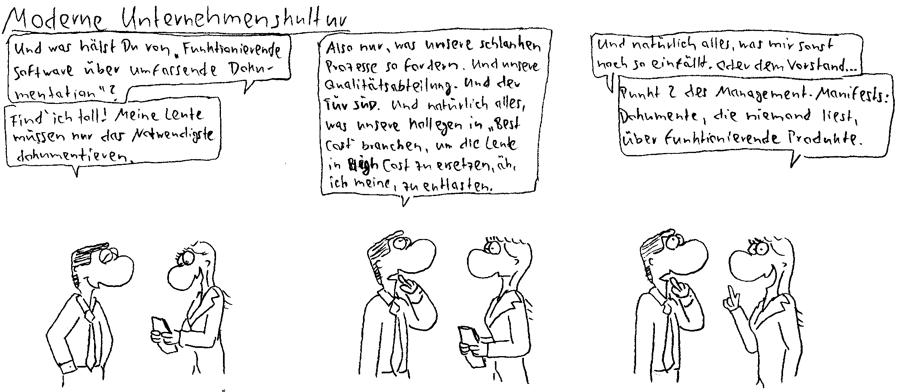 Moderne Unternehmenskultur
Und was hälst Du von „Funktionierende
Software über umfassende Doku-
mentation"?
Find' ich toll! Meine Leute
müssen nur das Notwendigste
dokumentieren.
Also nur, was unsere schlanken
Prozesse so fordern. Und unsere
Qualitätsabteilung. Und der
TÜV SÜD. Und natürlich alles,
was unsere Kollegen in „Best
Cost" brauchen, um die Leute
in High Cost zu ersetzen, äh,
ich meine, zu entlasten.
Und natürlich alles, was mir sonst
noch so einfällt. Oder dem Vorstand...
Punkt 2 des Management-Manifests:
Dokumente, die niemand liest,
über funktionierende Produkte.